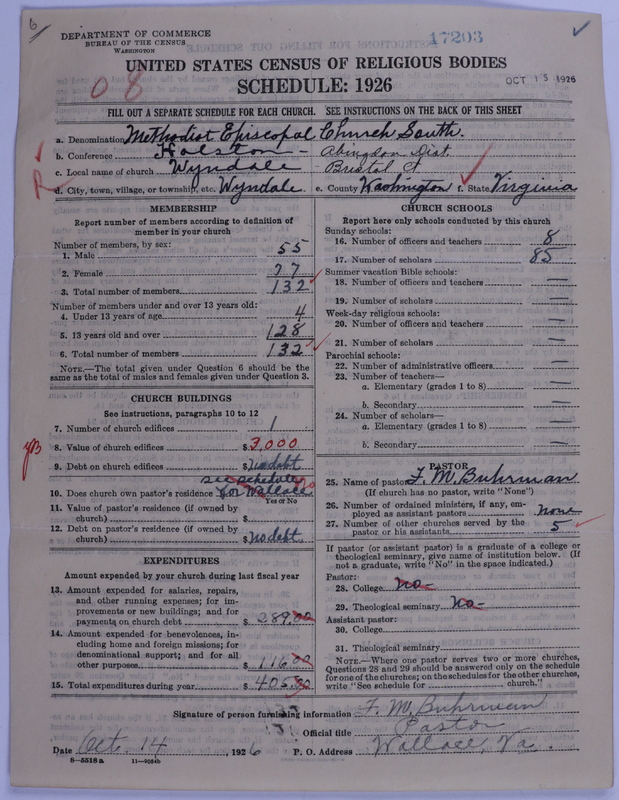 6
DEPARTMENT OF COMMERCE
BUREAU OF THE CENSUS
WASHINGTON
17203
UNITED STATES CENSUS OF RELIGIOUS BODIES
SCHEDULE: 1926
OCT 15 1926
08
FILL OUT A SEPARATE SCHEDULE FOR EACH CHURCH. SEE INSTRUCTIONS ON THE BACK OF THIS SHEET
a. Denomination Methodist Episcopal Church South.
b. Conference Holston - Abingdon Dist.
c. Local name of church Wyndale Bristol Ct
R d. City, town, village, or township, etc. Wyndale. e. County Washington f. State Virginia
MEMBERSHIP
Report number of members according to definition of
member in your church
Number of members, by sex:
1. Male 55
2. Female 77
3. Total number of members 132
Number of members under and over 13 years old:
4. Under 13 years of age 4
5. 13 years old and over 128
6. Total number of members 132
NOTE.—The total given under Question 6 should be the
same as the total of males and females given under Question 3.
CHURCH BUILDINGS
See instructions, paragraphs 10 to 12
7. Number of church edifices 1
8. Value of church edifices $3,000
9. Debt on church edifices $no debt
see schedule
10. Does church own pastor's residence for Wallace no
Yes or No
11. Value of pastor's residence (if owned by
church) $
12. Debt on pastor's residence (if owned by
church) $no debt
EXPENDITURES
Amount expended by your church during last fiscal year
13. Amount expended for salaries, repairs,
and other running expenses; for im-
provements or new buildings; and for
payments on church debt $ 289.00
14. Amount expended for benevolences, in-
cluding home and foreign missions; for
denominational support; and for all
other purposes $ 116.00
15. Total expenditures during year $ 405.00
CHURCH SCHOOLS
Report here only schools conducted by this church
Sunday schools:
16. Number of officers and teachers 8
17. Number of scholars 85
Summer vacation Bible schools:
18. Number of officers and teachers —
19. Number of scholars —
Week-day religious schools:
20. Number of officers and teachers —
21. Number of scholars —
Parochial schools:
22. Number of administrative officers —
23. Number of teachers—
a. Elementary (grades 1 to 8) —
b. Secondary —
24. Number of scholars—
a. Elementary (grades 1 to 8) —
b. Secondary —
PASTOR
25. Name of pastor F. M. Buhrman
(If church has no pastor, write "None")
26. Number of ordained ministers, if any, em-
ployed as assistant pastors none
27. Number of other churches served by the
pastor or his assistants 5
If pastor (or assistant pastor) is a graduate of a college or
theological seminary, give name of institution below. (If
not a graduate, write "No" in the space indicated.)
Pastor:
28. College no-
29. Theological seminary no-
Assistant pastor:
30. College
31. Theological seminary
NOTE.—Where one pastor serves two or more churches,
Questions 28 and 29 should be answered only on the schedule
for one of the churches; on the schedules for the other churches,
write "See schedule for church."
Signature of person furnishing information F. M. Buhrman
Official title Pastor
Date Oct. 14, 1926 P. O. Address Wallace, Va.
8—5518 a